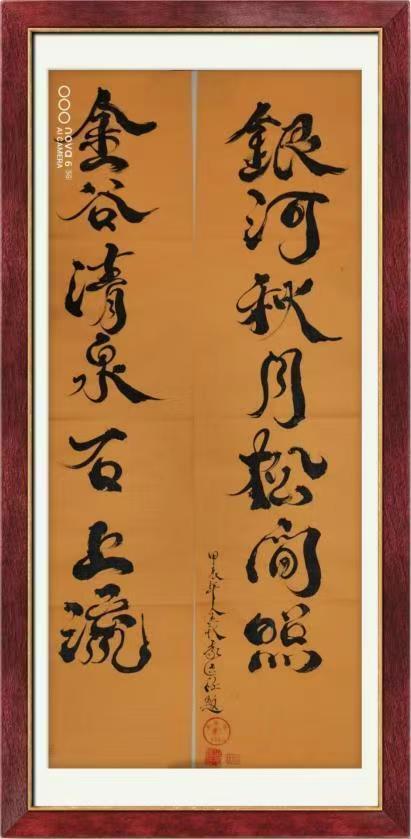 銀河秋月松間照
金谷清泉石上流
甲辰年
nova 6 5G
AI CAMERA